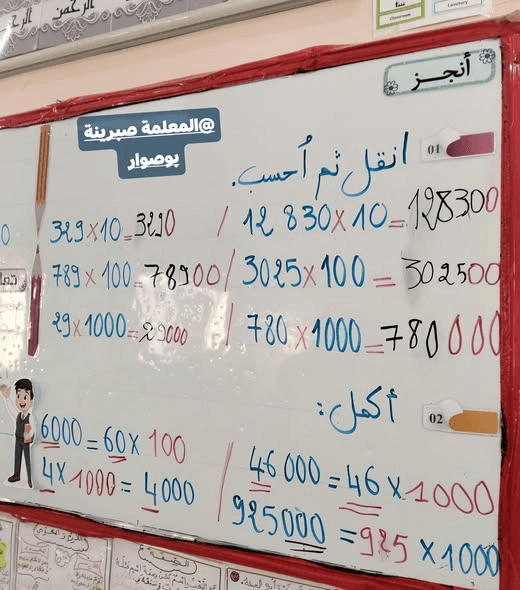 الرحمن
أنجز
@المعلمة صبرينة
بوصوار
01
انقل ثم أحسب.
12 830 × 10 = 128300
329 × 10 = 3290
3025 × 100 = 302500
789 × 100 = 78900
780 × 1000 = 780000
29 × 1000 = 29000
02
أكمل:
46 000 = 46 × 1000
6000 = 60 × 100
925000 = 925 × 1000
4 × 1000 = 4000